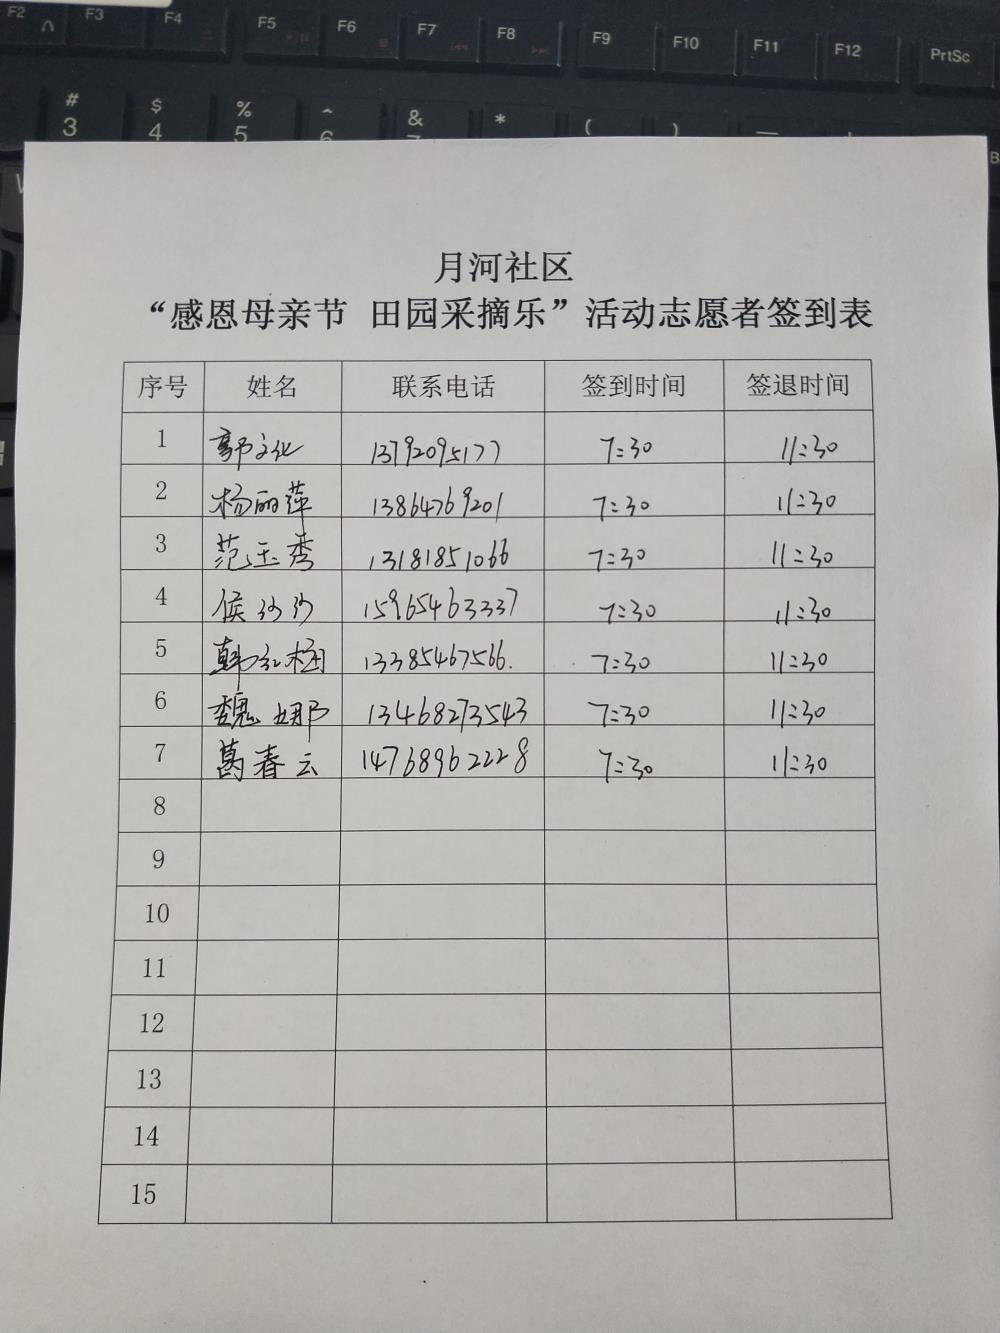 F2 F3 F4 F5 F6 F7 F8 F9 F10 F11 F12 PrtSc
# $ % ^ & * ( )
3 4 5 6 7
月河社区
“感恩母亲节 田园采摘乐”活动志愿者签到表
序号 姓名 联系电话 签到时间 签退时间
1 郭文化 13792095177 7:30 11:30
2 杨丽萍 13864769201 7:30 11:30
3 范玉秀 13181851066 7:30 11:30
4 侯沙沙 15965463337 7:30 11:30
5 韩红梅 13385467566. 7:30 11:30
6 魏娜 13468273543 7:30 11:30
7 葛春云 14768962228 7:30 11:30
8
9
10
11
12
13
14
15